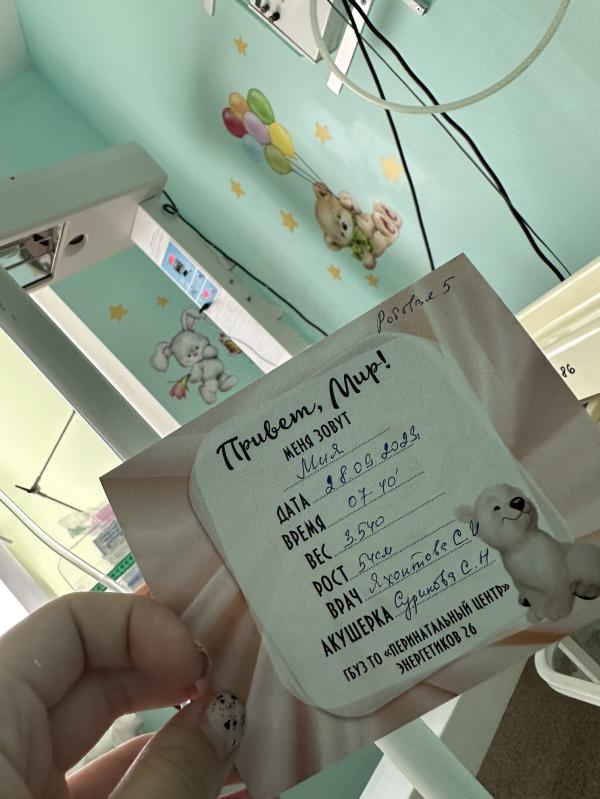 Родзал 5
Привет, Мир!
МЕНЯ ЗОВУТ
Мия
ДАТА 28 09 2023
ВРЕМЯ 07 40'
ВЕС 3.540
РОСТ 54см
ВРАЧ Яхонтова С.
АКУШЕРКА Сурикова С.Н
ГБУЗ ТО «ПЕРИНАТАЛЬНЫЙ ЦЕНТР»
ЭНЕРГЕТИКОВ 26
86